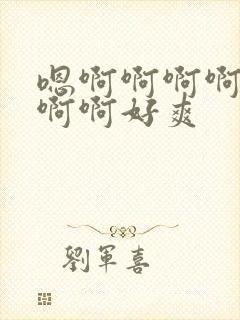 嗯啊啊啊啊
啊啊好爽
劉軍喜